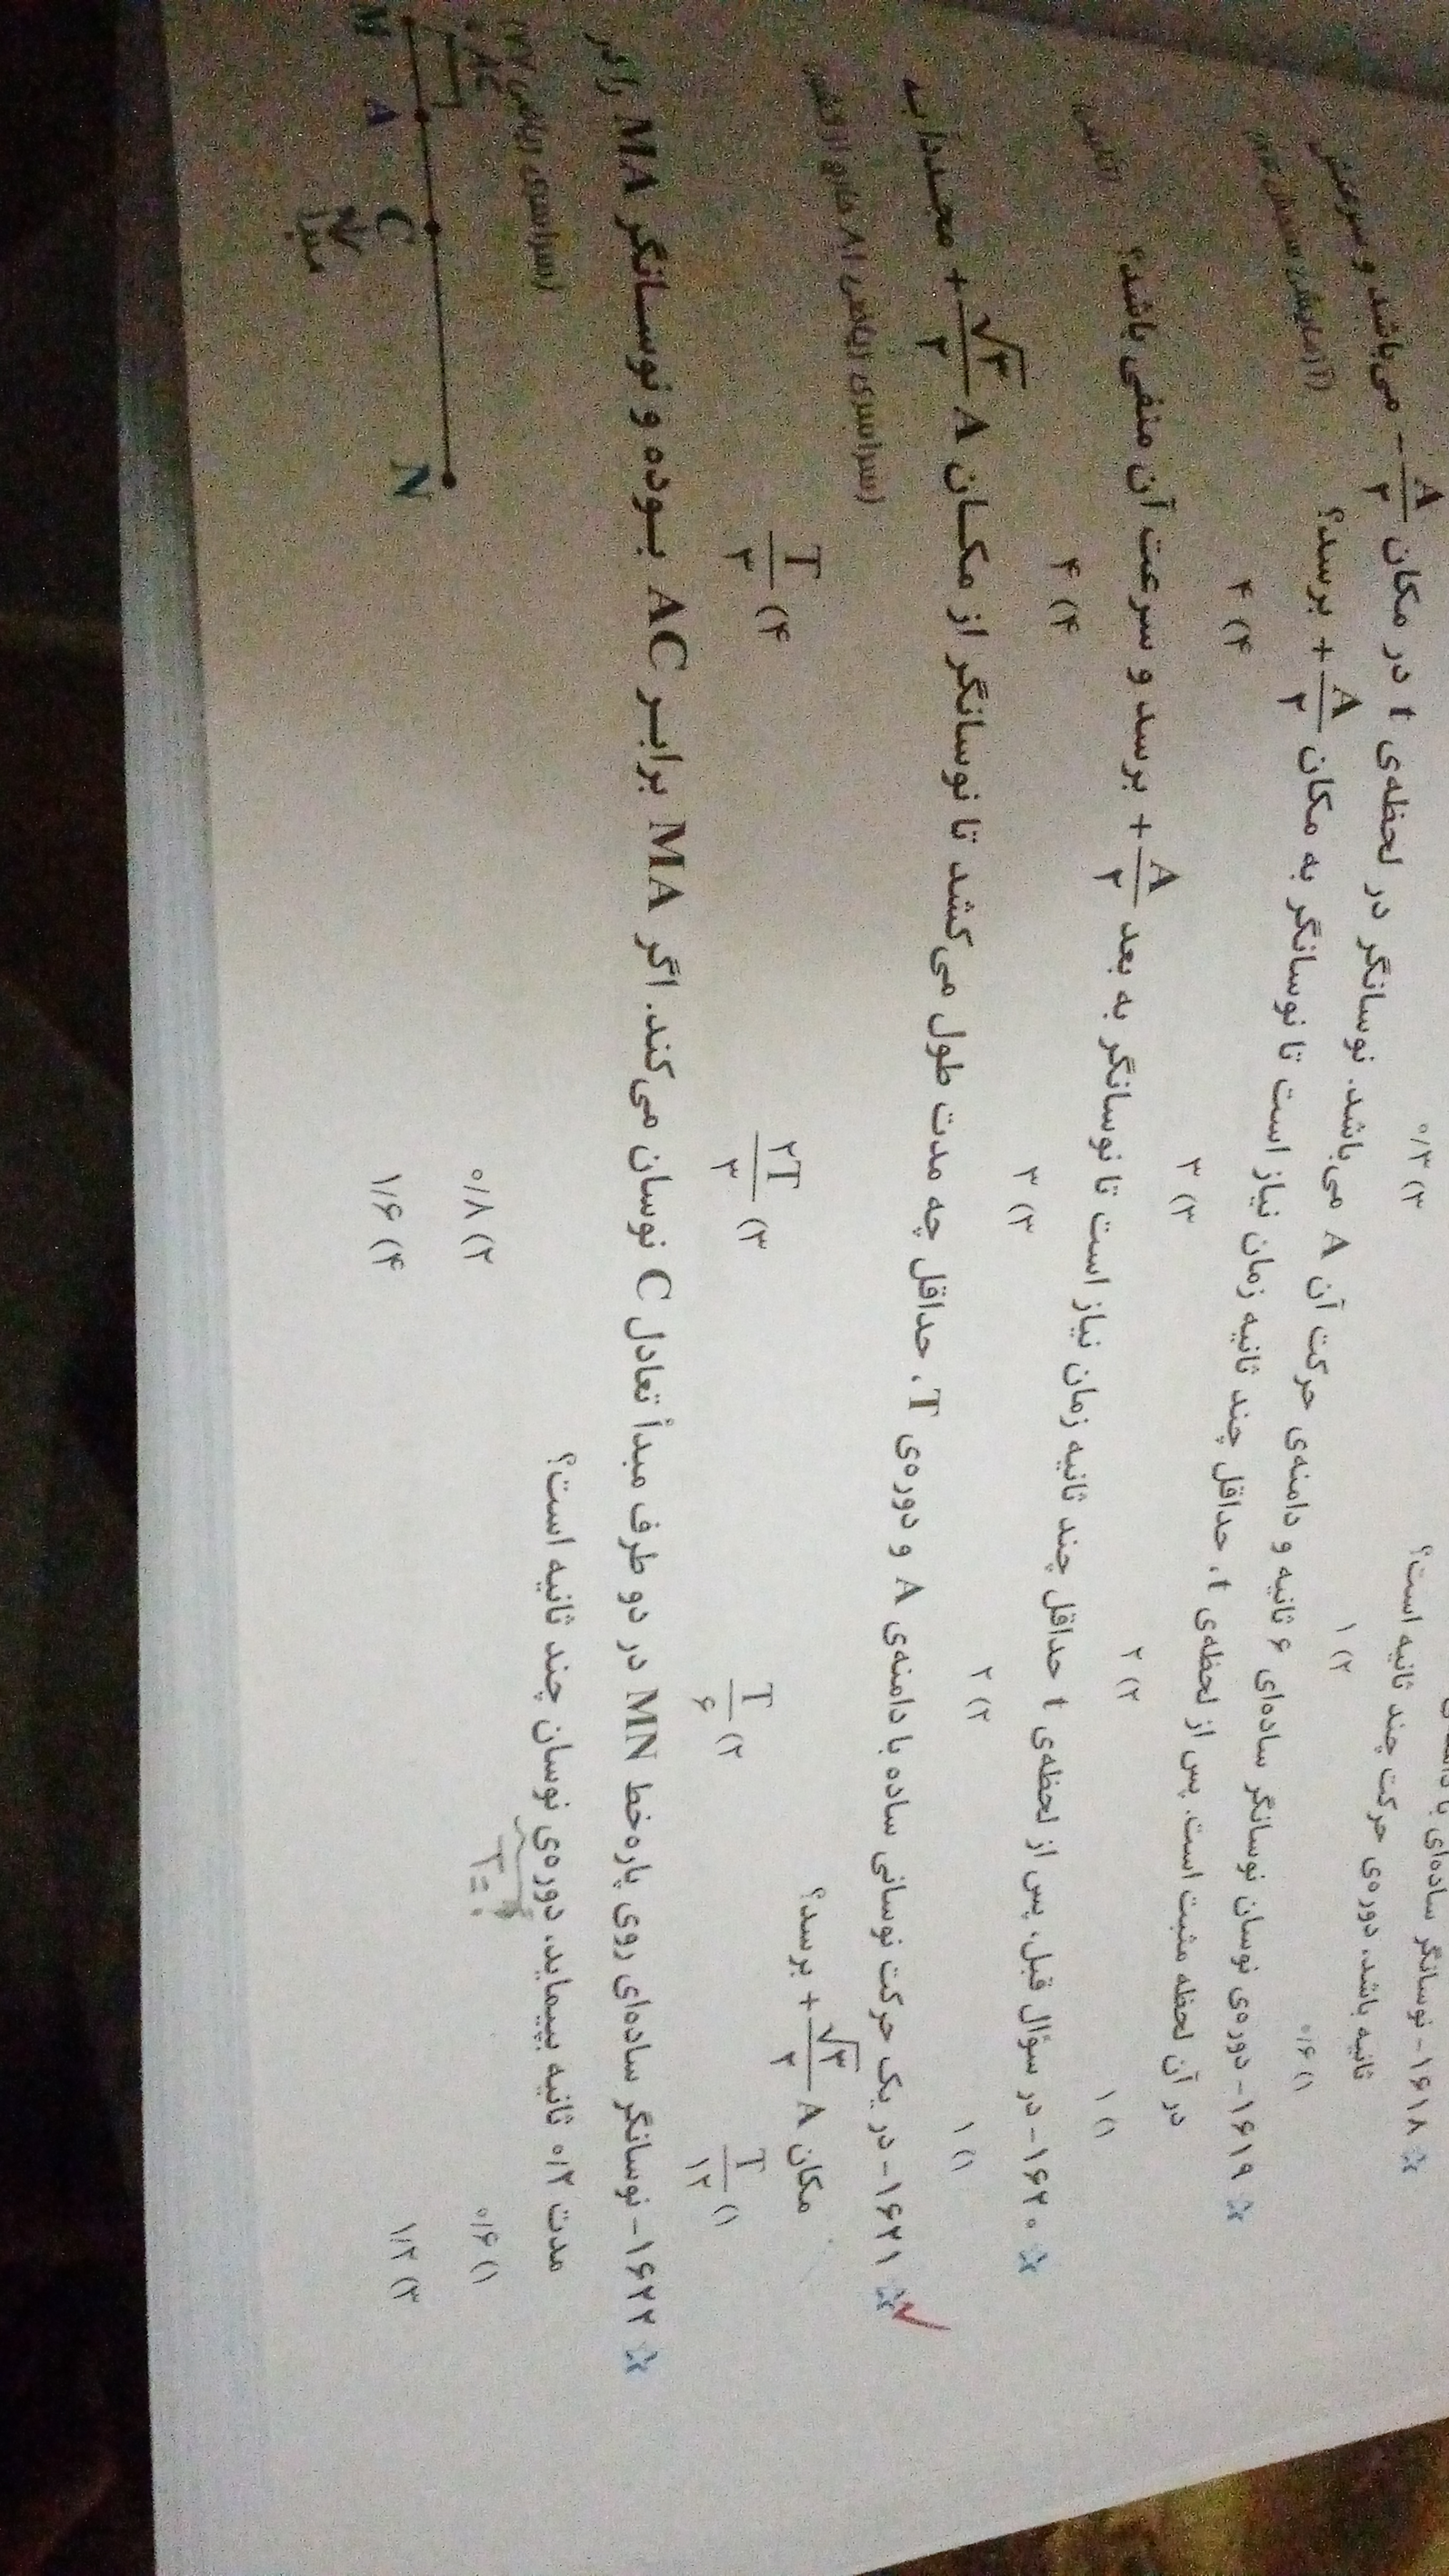 ۱۶۱۸- نوسانگر ساده‌ای با
ثانیه باشد، دوره‌ی حرکت چند ثانیه است؟
۱) ۰/۶
۲) ۱
۳) ۰/۳
۱۶۱۹- دوره‌ی نوسان نوسانگر ساده‌ای ۶ ثانیه و دامنه‌ی حرکت آن A می‌باشد. نوسانگر در لحظه‌ی t در مکان -A/۲ می‌باشد و سرعتش
در آن لحظه مثبت است. پس از لحظه‌ی t، حداقل چند ثانیه زمان نیاز است تا نوسانگر به مکان +A/۲ برسد؟
(آزمایشی سنجش
۱) ۱
۲) ۲
۳) ۳
۴) ۴
۱۶۲۰- در سؤال قبل، پس از لحظه‌ی t حداقل چند ثانیه زمان نیاز است تا نوسانگر به بعد +A/۲ برسد و سرعت آن منفی باشد؟
۱) ۱
۲) ۲
۳) ۳
۴) ۴
۱۶۲۱- در یک حرکت نوسانی ساده با دامنه‌ی A و دوره‌ی T، حداقل چه مدت طول می‌کشد تا نوسانگر از مکان +√۳/۲ A مجدداً به
مکان +√۳/۲ A برسد؟
(سراسری ریاضی ۸۱ خارج از کشور)
۱) T/۱۲
۲) T/۶
۳) ۲T/۳
۴) T/۳
۱۶۲۲- نوسانگر ساده‌ای روی پاره‌خط MN در دو طرف مبدأ تعادل C نوسان می‌کند. اگر MA برابر AC بوده و نوسانگر MA را در
مدت ۰/۲ ثانیه بپیماید، دوره‌ی نوسان چند ثانیه است؟
(سراسری ریاضی ۷۷)
T = ?
۱) ۰/۶
۲) ۰/۸
۳) ۱/۲
۴) ۱/۶
M A C N
مبدأ